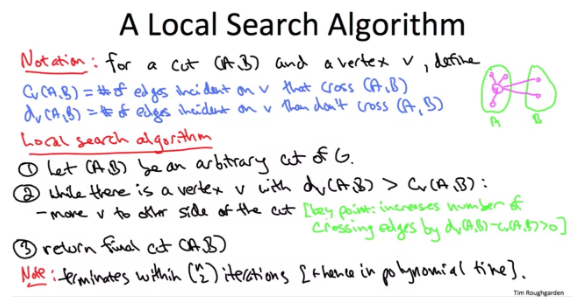 A Local Search Algorithm
Notation: for a cut (A,B) and a vertex v, define
Cv(A,B) = # of edges incident on v that cross (A,B)
dv(A,B) = # of edges incident on v than don't cross (A,B)
A B
Local search algorithm
① Let (A,B) be an arbitrary cut of G.
② While there is a vertex v with dv(A,B) > Cv(A,B):
- move v to other side of the cut [key point: increases number of
crossing edges by dv(A,B)-cv(A,B)>0]
③ return final cut (A,B)
Note: terminates within (n 2) iterations [+hence in polynomial time].
Tim Roughgarden